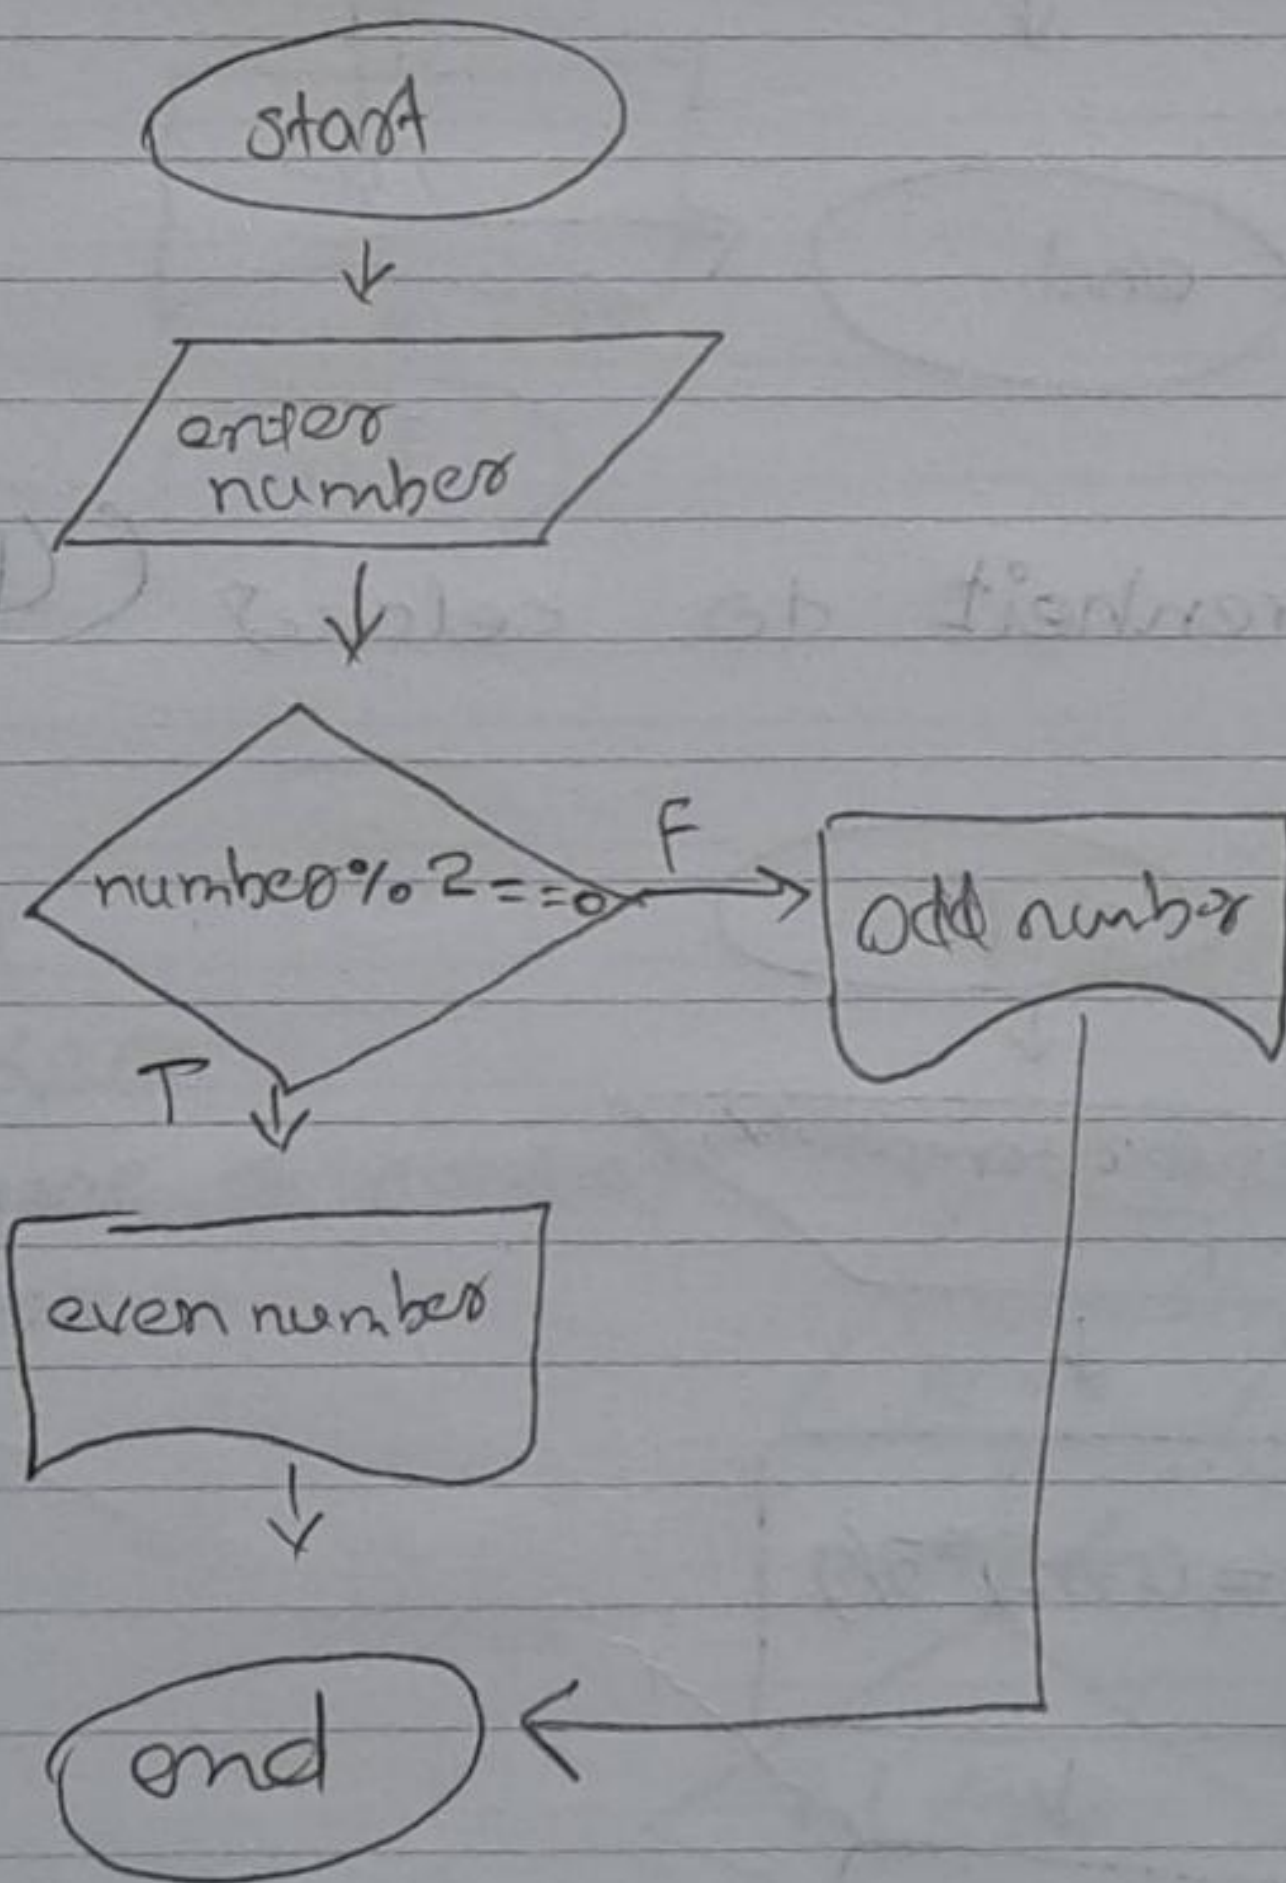 start
enter
number
number%2==0
F
odd number
T
even number
end